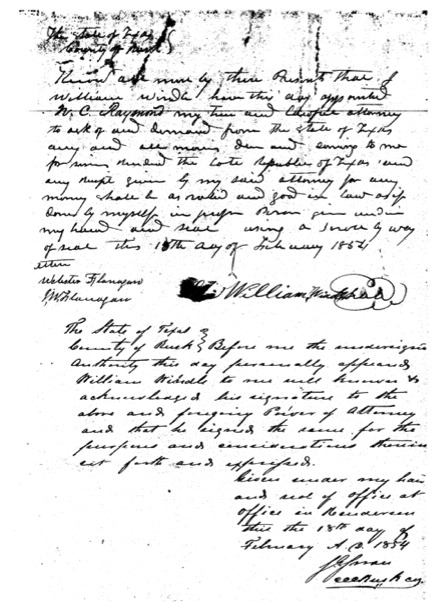 The State of Texas
County of Rusk
Know all men by these Presents that I
William Windle have this day appointed
N. C. Raymond my true and Lawful attorney
to ask of and demand from the State of Texas
any and all monies due and coming to me
for services rendered the late Republic of Texas and
any receipt given by my said attorney for any
money shall be as valid and good in law as if
done by myself in proper Person given under
my hand and seal using a scrole by way
of seal this 18th day of February 1854
Webster Flanagan
J W Flanagan
William
The State of Texas
County of Rusk Before me the undersigned
Authority this day personally appeared
William to me well known &
acknowledged his signature to the
above and foregoing Power of Attorney
and that he signed the same for the
purposes and considerations therein
set forth and expressed.
Given under my hand
and seal of office at
office in Henderson
this the 18th day of
February A. D. 1854
Rusk Co